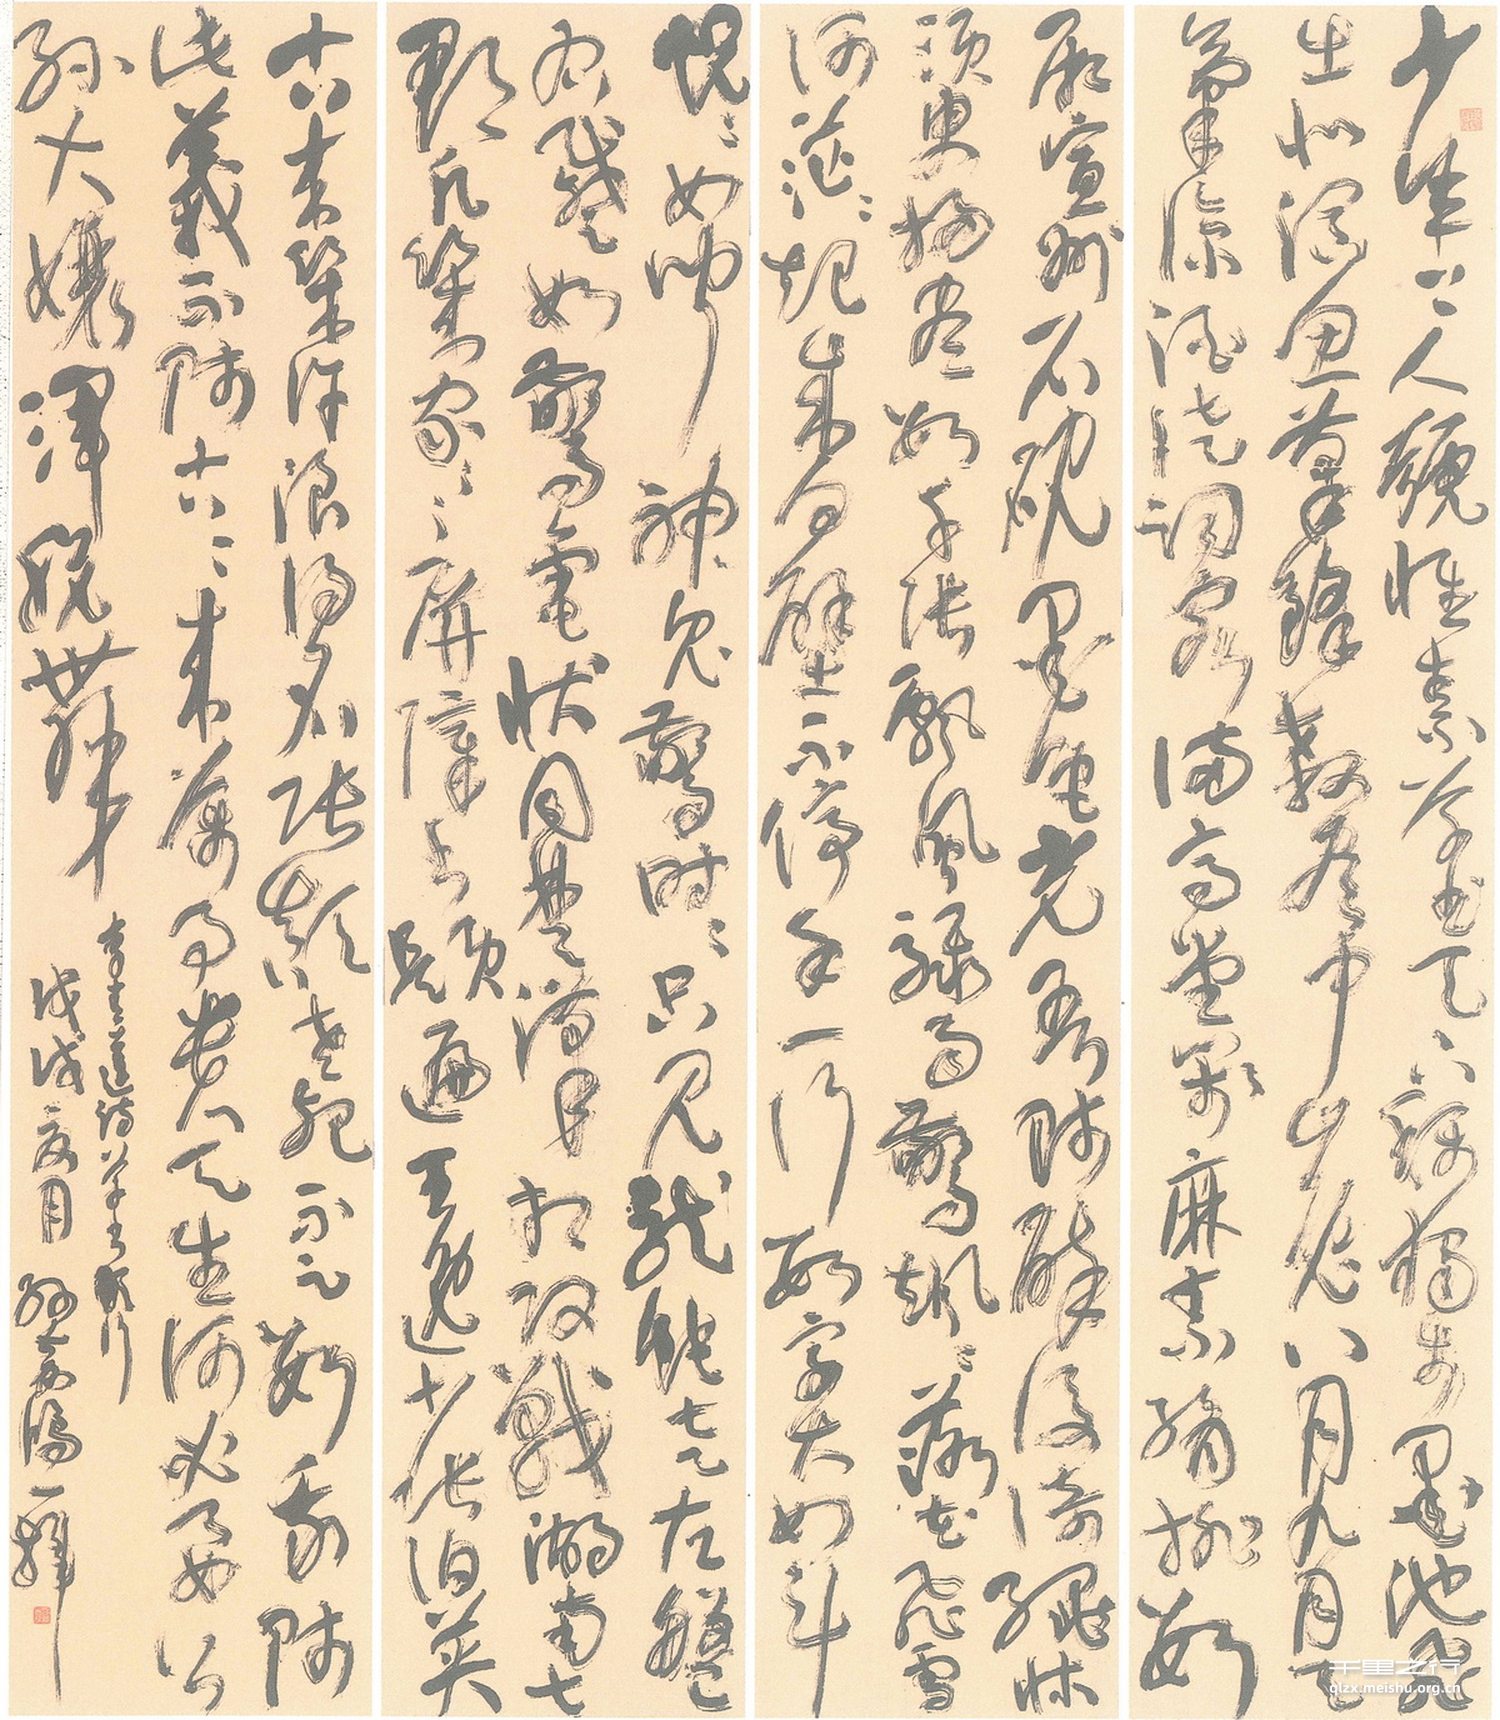 少年上人號懷素草書天下稱獨步墨池飛
出北溟魚筆鋒殺盡中山兔八月九月天
氣涼酒徒詞客滿高堂箋麻素絹排數
廂宣州石硯墨色光吾師醉後倚繩床
須臾掃盡數千張飄風驟雨驚颯颯落花飛雪
何茫茫起來向壁不停手一行數字大如斗
怳怳如聞神鬼驚時時只見龍蛇走左盤
右蹙如驚電狀同楚漢相攻戰湖南七
郡凡幾家家家屏障書題遍王逸少張伯英
古來幾許浪得名張顛老死不足數我師
此義不師古古來萬事貴天生何必要公
孫大娘渾脱舞
詩草書歌行
戊戌夏月
千里之行
qlzx.meishu.org.cn